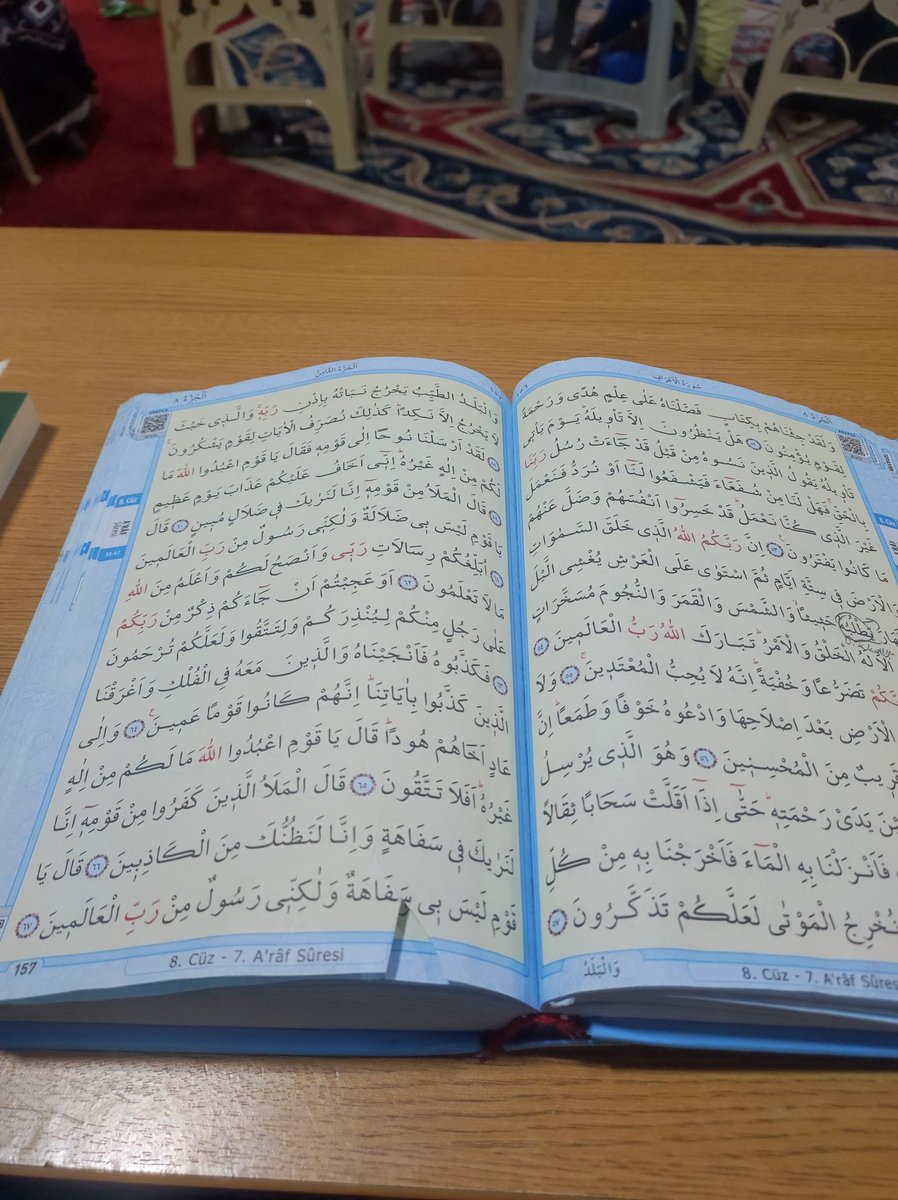 سُورَةُ الْاَعْرَافِ
١٥٦
اَلْجُزْءُ ٨
وَلَقَدْ جِئْنَاهُمْ بِكِتَابٍ فَصَّلْنَاهُ عَلٰى عِلْمٍ هُدًى وَرَحْمَةً
لِقَوْمٍ يُؤْمِنُونَ ٥٢ هَلْ يَنْظُرُونَ اِلَّا تَأْوِيلَهُۜ يَوْمَ يَأْتِي
تَأْوِيلُهُ يَقُولُ الَّذِينَ نَسُوهُ مِنْ قَبْلُ قَدْ جَٓاءَتْ رُسُلُ رَبِّنَا
بِالْحَقِّۚ فَهَلْ لَنَا مِنْ شُفَعَٓاءَ فَيَشْفَعُوا لَنَٓا اَوْ نُرَدُّ فَنَعْمَلَ
غَيْرَ الَّذِي كُنَّا نَعْمَلُۜ قَدْ خَسِرُٓوا اَنْفُسَهُمْ وَضَلَّ عَنْهُمْ
مَا كَانُوا يَفْتَرُونَ ٥٣ اِنَّ رَبَّكُمُ اللّٰهُ الَّذِي خَلَقَ السَّمٰوَاتِ
وَالْاَرْضَ فِي سِتَّةِ اَيَّامٍ ثُمَّ اسْتَوٰى عَلَى الْعَرْشِ يُغْشِي الَّيْلَ
يَطْلُبُهُ حَثِيثًاۙ وَالشَّمْسَ وَالْقَمَرَ وَالنُّجُومَ مُسَخَّرَاتٍ
اَلَا لَهُ الْخَلْقُ وَالْاَمْرُۜ تَبَارَكَ اللّٰهُ رَبُّ الْعَالَمِينَ ٥٤
تَضَرُّعًا وَخُفْيَةًۜ اِنَّهُ لَا يُحِبُّ الْمُعْتَدِينَۚ ٥٥ وَلَا
الْاَرْضِ بَعْدَ اِصْلَاحِهَا وَادْعُوهُ خَوْفًا وَطَمَعًاۜ اِنَّ
قَرِيبٌ مِنَ الْمُحْسِنِينَ ٥٦ وَهُوَ الَّذِي يُرْسِلُ
بَيْنَ يَدَيْ رَحْمَتِهِۜ حَتّٰٓى اِذَٓا اَقَلَّتْ سَحَابًا ثِقَالًا
فَاَنْزَلْنَا بِهِ الْمَٓاءَ فَاَخْرَجْنَا بِهِ مِنْ كُلِّ
نُخْرِجُ الْمَوْتٰى لَعَلَّكُمْ تَذَكَّرُونَ ٥٧
وَالْبَلَدُ
8. Cüz - 7. A'râf Sûresi
اَلْجُزْءُ الثَّامِنُ
اَلْجُزْءُ ٨
وَالْبَلَدُ الطَّيِّبُ يَخْرُجُ نَبَاتُهُ بِاِذْنِ رَبِّهِۚ وَالَّذِي خَبُثَ
لَا يَخْرُجُ اِلَّا نَكِدًاۜ كَذٰلِكَ نُصَرِّفُ الْاٰيَاتِ لِقَوْمٍ يَشْكُرُونَ۟
٥٨ لَقَدْ اَرْسَلْنَا نُوحًا اِلٰى قَوْمِهِ فَقَالَ يَا قَوْمِ اعْبُدُوا اللّٰهَ مَا
لَكُمْ مِنْ اِلٰهٍ غَيْرُهُۜ اِنِّٓي اَخَافُ عَلَيْكُمْ عَذَابَ يَوْمٍ عَظِيمٍ
٥٩ قَالَ الْمَلَاُ مِنْ قَوْمِهِٓ اِنَّا لَنَرٰيكَ فِي ضَلَالٍ مُبِينٍ ٦٠ قَالَ
يَا قَوْمِ لَيْسَ بِي ضَلَالَةٌ وَلٰكِنِّي رَسُولٌ مِنْ رَبِّ الْعَالَمِينَ
٦١ اُبَلِّغُكُمْ رِسَالَاتِ رَبِّي وَاَنْصَحُ لَكُمْ وَاَعْلَمُ مِنَ اللّٰهِ
مَا لَا تَعْلَمُونَ ٦٢ اَوَعَجِبْتُمْ اَنْ جَٓاءَكُمْ ذِكْرٌ مِنْ رَبِّكُمْ
عَلٰى رَجُلٍ مِنْكُمْ لِيُنْذِرَكُمْ وَلِتَتَّقُوا وَلَعَلَّكُمْ تُرْحَمُونَ
٦٣ فَكَذَّبُوهُ فَاَنْجَيْنَاهُ وَالَّذِينَ مَعَهُ فِي الْفُلْكِ وَاَغْرَقْنَا
الَّذِينَ كَذَّبُوا بِاٰيَاتِنَاۜ اِنَّهُمْ كَانُوا قَوْمًا عَمِينَ۟ ٦٤ وَاِلٰى
عَادٍ اَخَاهُمْ هُودًاۜ قَالَ يَا قَوْمِ اعْبُدُوا اللّٰهَ مَا لَكُمْ مِنْ اِلٰهٍ
غَيْرُهُۜ اَفَلَا تَتَّقُونَ ٦٥ قَالَ الْمَلَاُ الَّذِينَ كَفَرُوا مِنْ قَوْمِهِٓ اِنَّا
لَنَرٰيكَ فِي سَفَاهَةٍ وَاِنَّا لَنَظُنُّكَ مِنَ الْكَاذِبِينَ ٦٦ قَالَ يَا
قَوْمِ لَيْسَ بِي سَفَاهَةٌ وَلٰكِنِّي رَسُولٌ مِنْ رَبِّ الْعَالَمِينَ ٦٧
8. Cüz - 7. A'râf Sûresi
157
8. Cüz